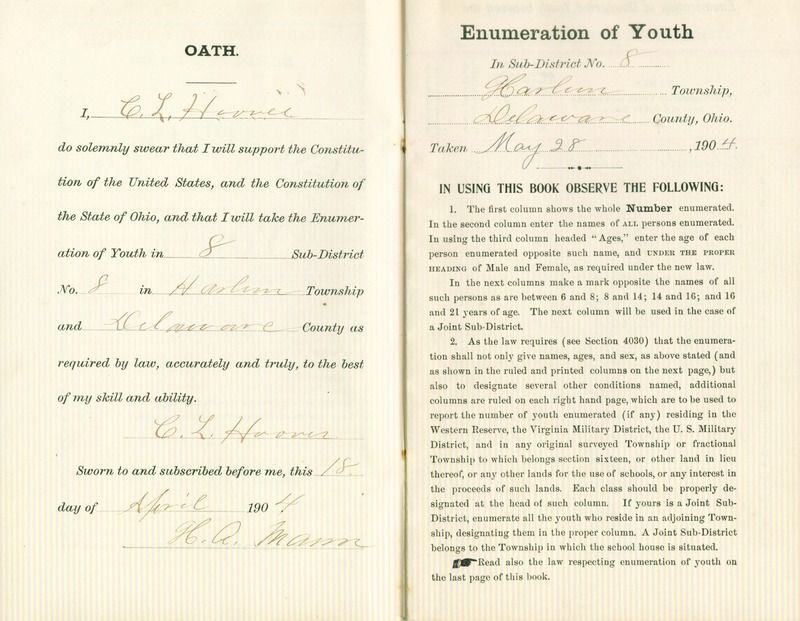 OATH.
I, C. L. Hoover
do solemnly swear that I will support the Constitu-
tion of the United States, and the Constitution of
the State of Ohio, and that I will take the Enumer-
ation of Youth in 8 Sub-District
No. 8 in Harlem Township
and Delaware County as
required by law, accurately and truly, to the best
of my skill and ability.
C. L. Hoover
Sworn to and subscribed before me, this 18
day of April 1904
H. A. Mann
Enumeration of Youth
In Sub-District No. 8
Harlem Township,
Delaware County, Ohio.
Taken May 28, 1904.
IN USING THIS BOOK OBSERVE THE FOLLOWING:
1. The first column shows the whole Number enumerated.
In the second column enter the names of ALL persons enumerated.
In using the third column headed "Ages," enter the age of each
person enumerated opposite such name, and UNDER THE PROPER
HEADING of Male and Female, as required under the new law.
In the next columns make a mark opposite the names of all
such persons as are between 6 and 8; 8 and 14; 14 and 16; and 16
and 21 years of age. The next column will be used in the case of
a Joint Sub-District.
2. As the law requires (see Section 4030) that the enumera-
tion shall not only give names, ages, and sex, as above stated (and
as shown in the ruled and printed columns on the next page,) but
also to designate several other conditions named, additional
columns are ruled on each right hand page, which are to be used to
report the number of youth enumerated (if any) residing in the
Western Reserve, the Virginia Military District, the U. S. Military
District, and in any original surveyed Township or fractional
Township to which belongs section sixteen, or other land in lieu
thereof, or any other lands for the use of schools, or any interest in
the proceeds of such lands. Each class should be properly de-
signated at the head of such column. If yours is a Joint Sub-
District, enumerate all the youth who reside in an adjoining Town-
ship, designating them in the proper column. A Joint Sub-District
belongs to the Township in which the school house is situated.
☛Read also the law respecting enumeration of youth on
the last page of this book.